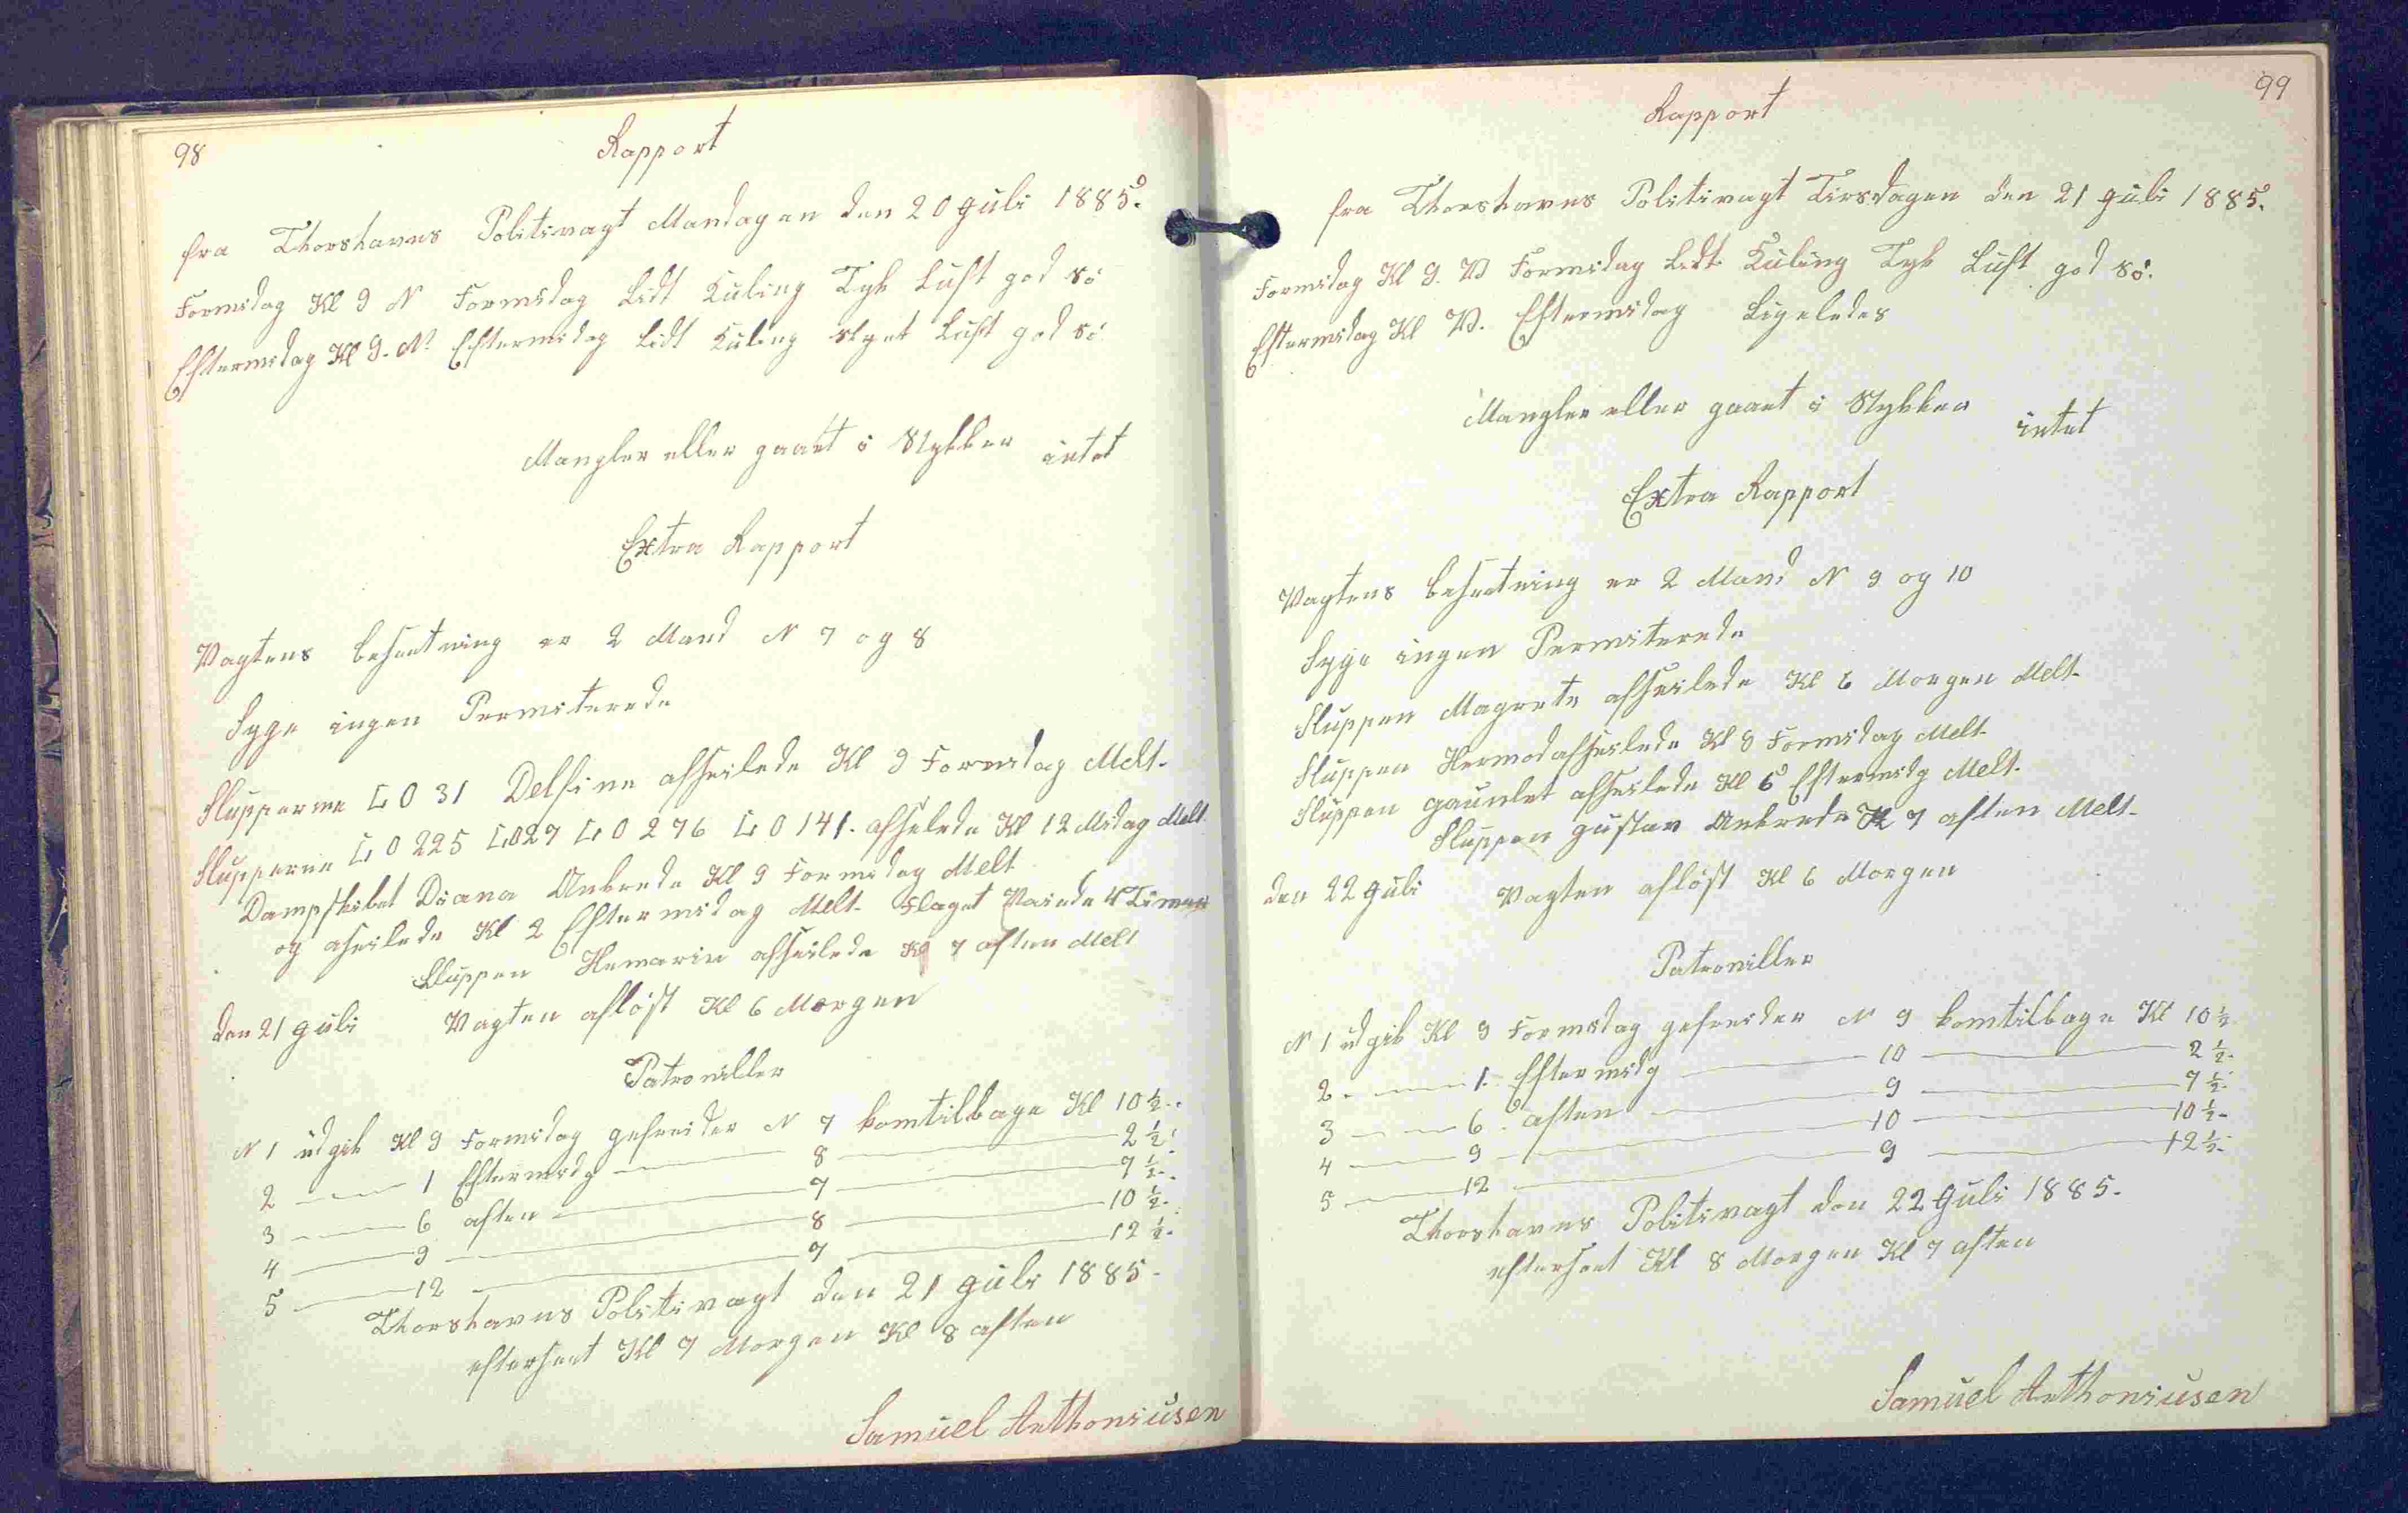 98
Rapport
fra Thorshavns Politivagt Mandagen den 20 Juli 1885.
Formidag Kl 9 N Formidag Lidt Kuling Tyk Luft god Sö
Eftermidag Kl 9. N. Eftermidag Lidt Kuling Skyet Luft god Sö
Mangler eller gaaet i Stykker intet
Extra Rapport
Vagtens besætning er 2 Mand N 7 og 8
Syge ingen Permiterede
Slupperne LO 31 Delfine afseilede Kl 9 Formidag Melt.
Slupperne LO 225 LO 27 LO 276 LO 141. afselede Kl 12 Midag Melt.
Dampskibet Diana Ankrede Kl 9 Formidag Melt
og aseilede Kl 2 Eftermidag Melt. Flaget Vaiede 4 Timer
Sluppen Hemarin afseilede Kl 7 aften Melt
den 21 Juli Vagten aflöst Kl 6 Morgen
Patroniller
N 1 udgik Kl 9 Formidag gefreider N 7 komtilbage Kl 10 ½.
2 — 1 Eftermidg — 8 — 2 ½.
3 — 6 aften — 7 — 7 ½.
4 — 9 — 8 — 10 ½.
5 — 12 — 7 — 12 ½.
Thorshavns Politivagt den 21 Juli 1885.
efterseet Kl 7 Morgen Kl 8 aften
Samuel Anthoniusen
99
Rapport
fra Thorshavns Politivagt Tirsdagen den 21 Juli 1885.
Formidag Kl 9. V Formidag Lidt Kuling Tyk Luft god Sö.
Eftermidag Kl V. Eftermidag Ligeledes
Mangler eller gaaet i Stykker intet
Extra Rapport
Vagtens besætning er 2 Mand N 9 og 10
Syge ingen Permiterede
Sluppen Magrete afseilede Kl 6 Morgen Melt.
Sluppen Hermod afseilede Kl 8 Formidag Melt.
Sluppen Gauntlet afseilede Kl 6 Eftermidg Melt.
Sluppen Gustav Ankrede Kl 7 aften Melt.
den 22 Juli Vagten aflöst Kl 6 Morgen
Patroniller
N 1 udgik Kl 9 Formidag gefreider N 9 komtilbage Kl 10 ½
2. — 1. Eftermidg — 10 — 2 ½.
3 — 6. aften — 9 — 7 ½.
4 — 9 — 10 — 10 ½.
5 — 12 — 9 — 12 ½.
Thorshavns Politivagt den 22 Juli 1885.
efterseet Kl 8 Morgen Kl 7 aften
Samuel Anthoniusen